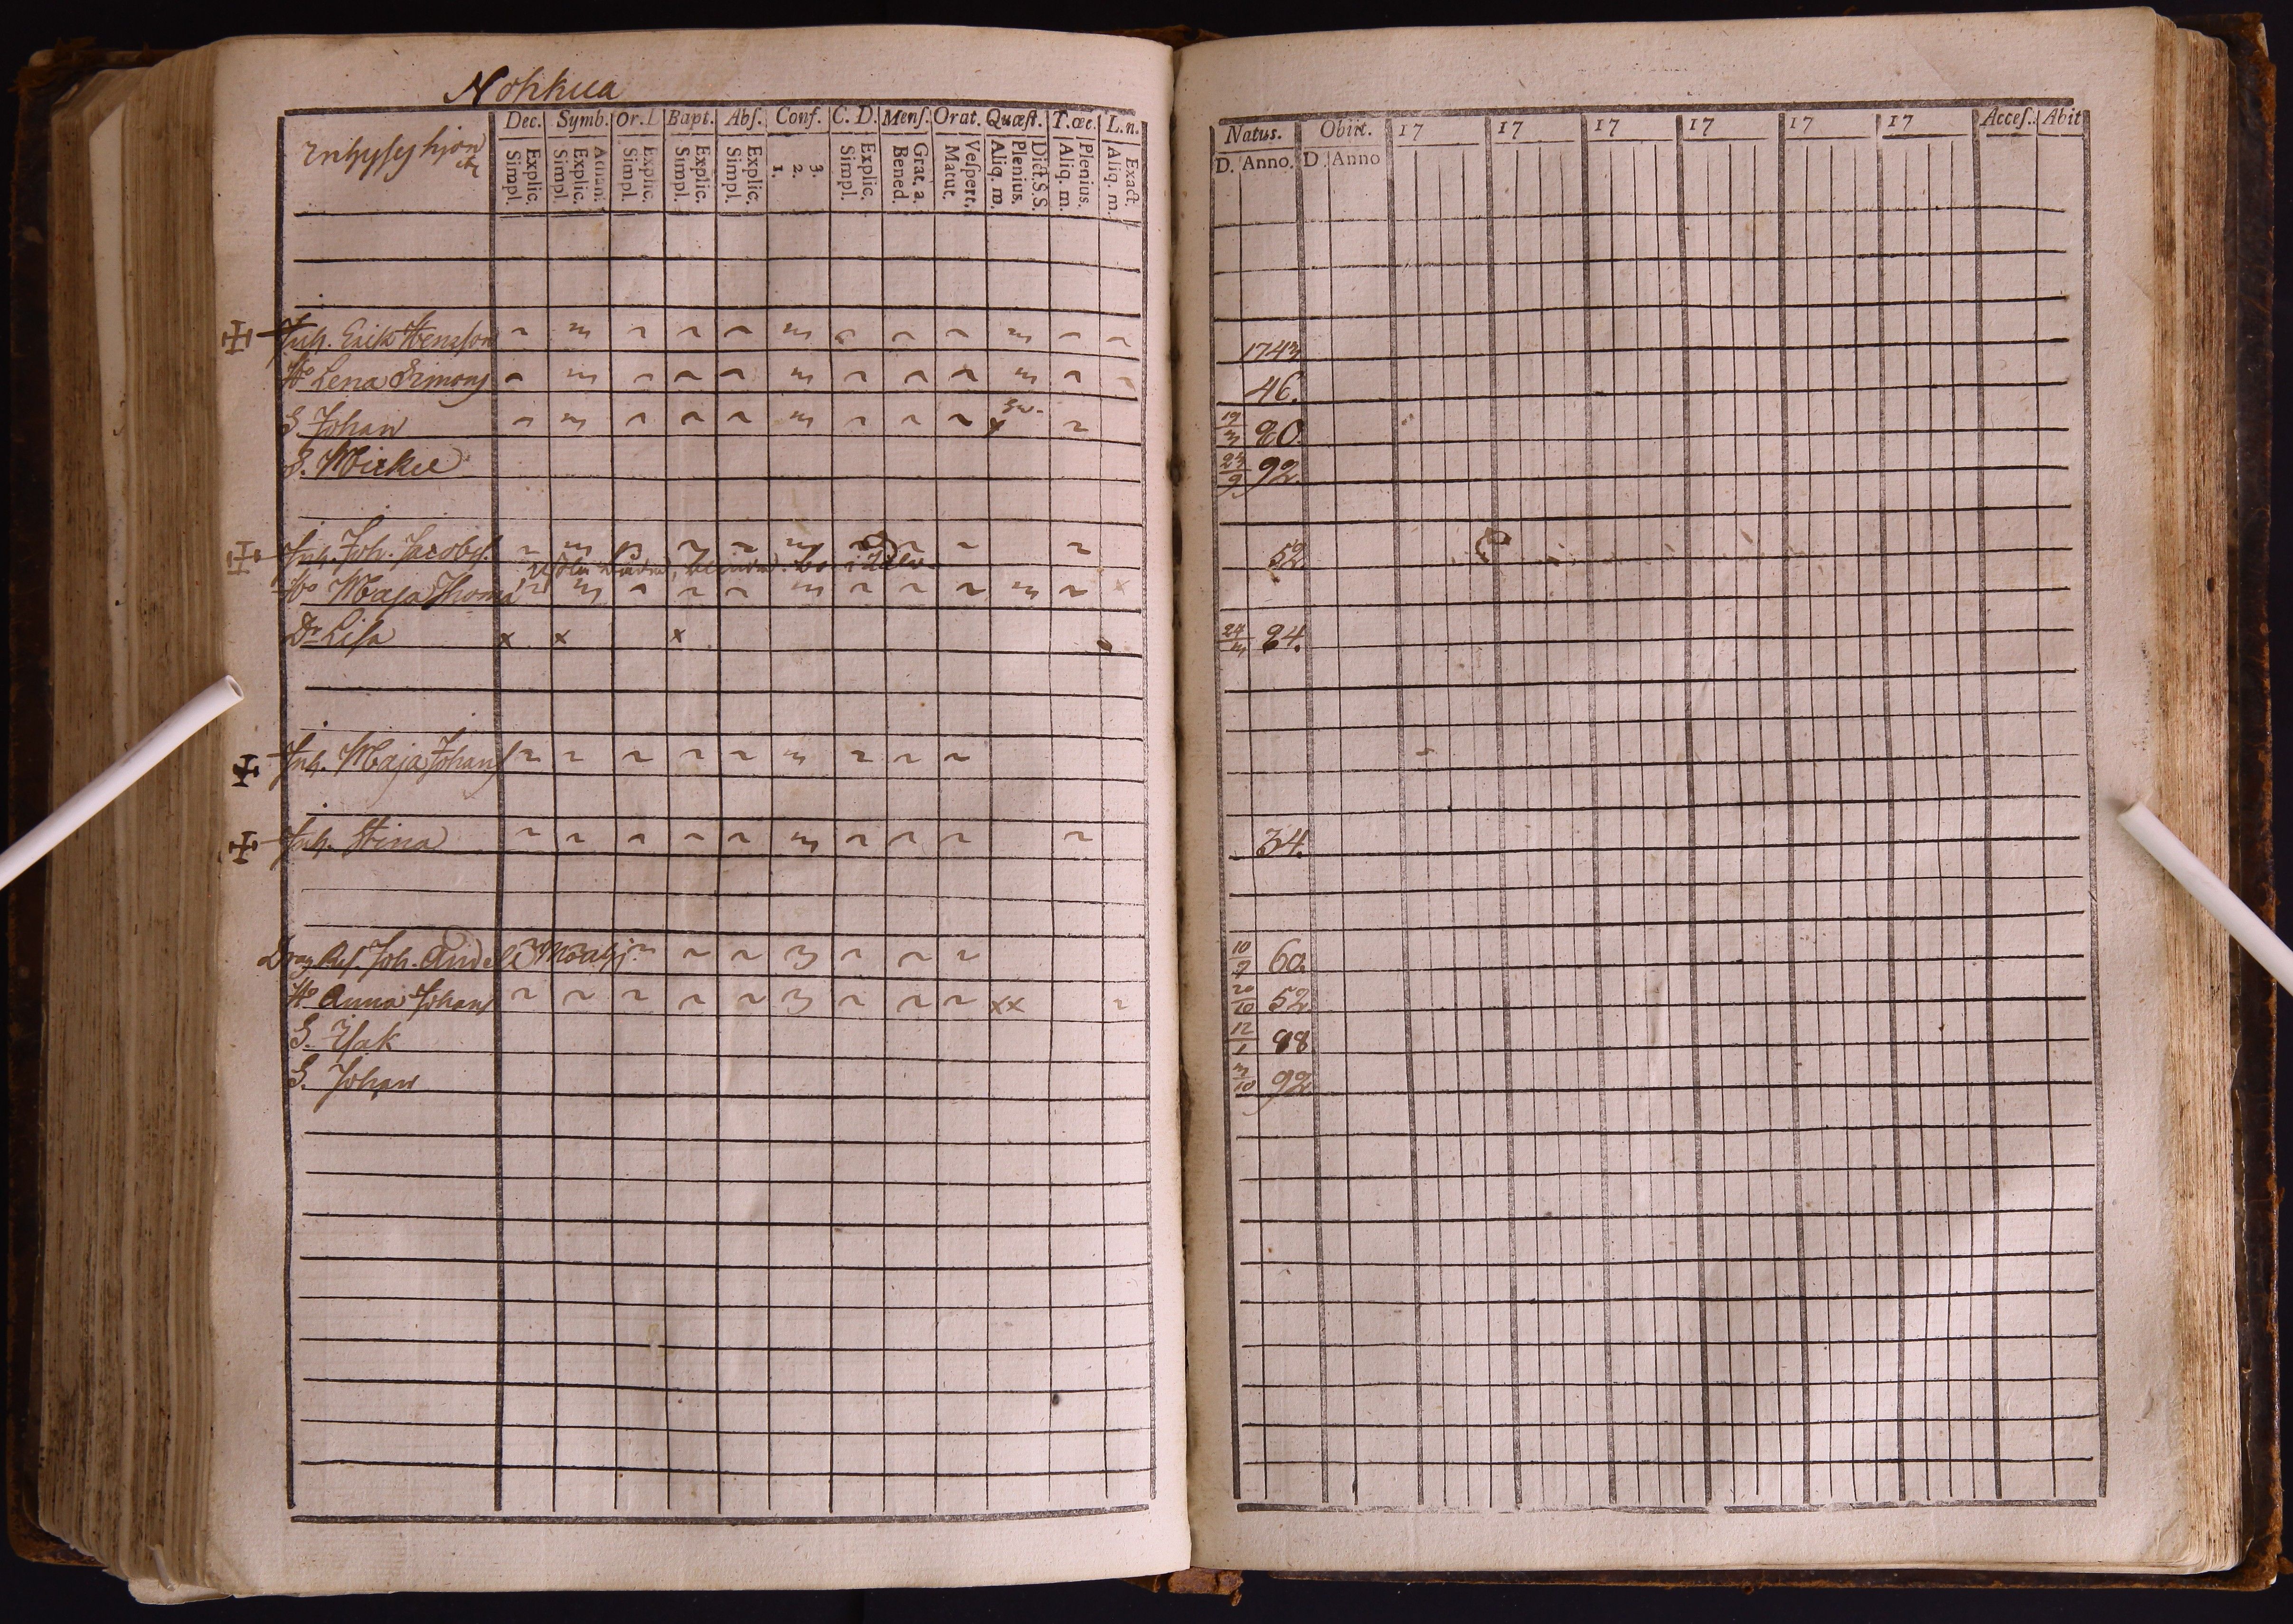 Nohkua
Inhyses hjon etc
Dec. Symb. Or. D. Bapt. Abs. Conf. C. D. Mens. Orat. Quæst. T. œc. L. n.
Explic. Simpl. Athan. Explic. Simpl. Explic. Simpl. Explic. Simpl. Explic. Simpl. 3. 2. 1. Explic. Simpl. Grat. a. Bened. Vespert. Matut. Dict. S. S. Plenius. Aliq. m. Plenius. Aliq. m. Exact. Aliq. m.
Natus. Obiit. 17 17 17 17 17 17 Acces. Abit
D. Anno. D. Anno
Inh. Erik Hensson 1743
Ho Lena Simons 46.
S. Johan 19/3 80
S. Mickel 23/9 92.
Inh. Joh. Jacobs. 52
Ho Maja Thoms
Dr Lisa x x x 24/3 84.
Inh. Maja Johans
Inh. Stina 34.
Drag. Joh. 10/9 60.
Ho Anna Johans xx 20/10 52.
S. Isak 12/1 88.
S. Johan 3/10 92.